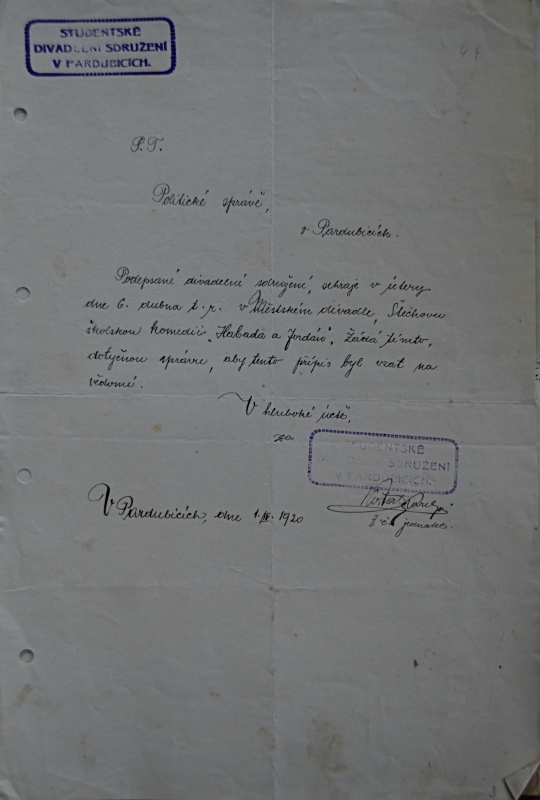 STUDENTSKÉ
DIVADELNÍ SDRUŽENÍ
V PARDUBICÍCH.
44
P.T.
Politické správě,
v Pardubicích.
Podepsané divadelní sdružení, sehraje v úterý
dne 6. dubna t.r. v Městském divadle, Štechovu
školskou komedii „Habada a Jordán“, žádá tímto,
dotyčnou správu, aby tento přípis byl vzat na
vědomí.
V hluboké úctě,
za
STUDENTSKÉ
SDRUŽENÍ
V PARDUBICÍCH.
V Pardubicích, dne 1. IV. 1920
t.č. jednatel.